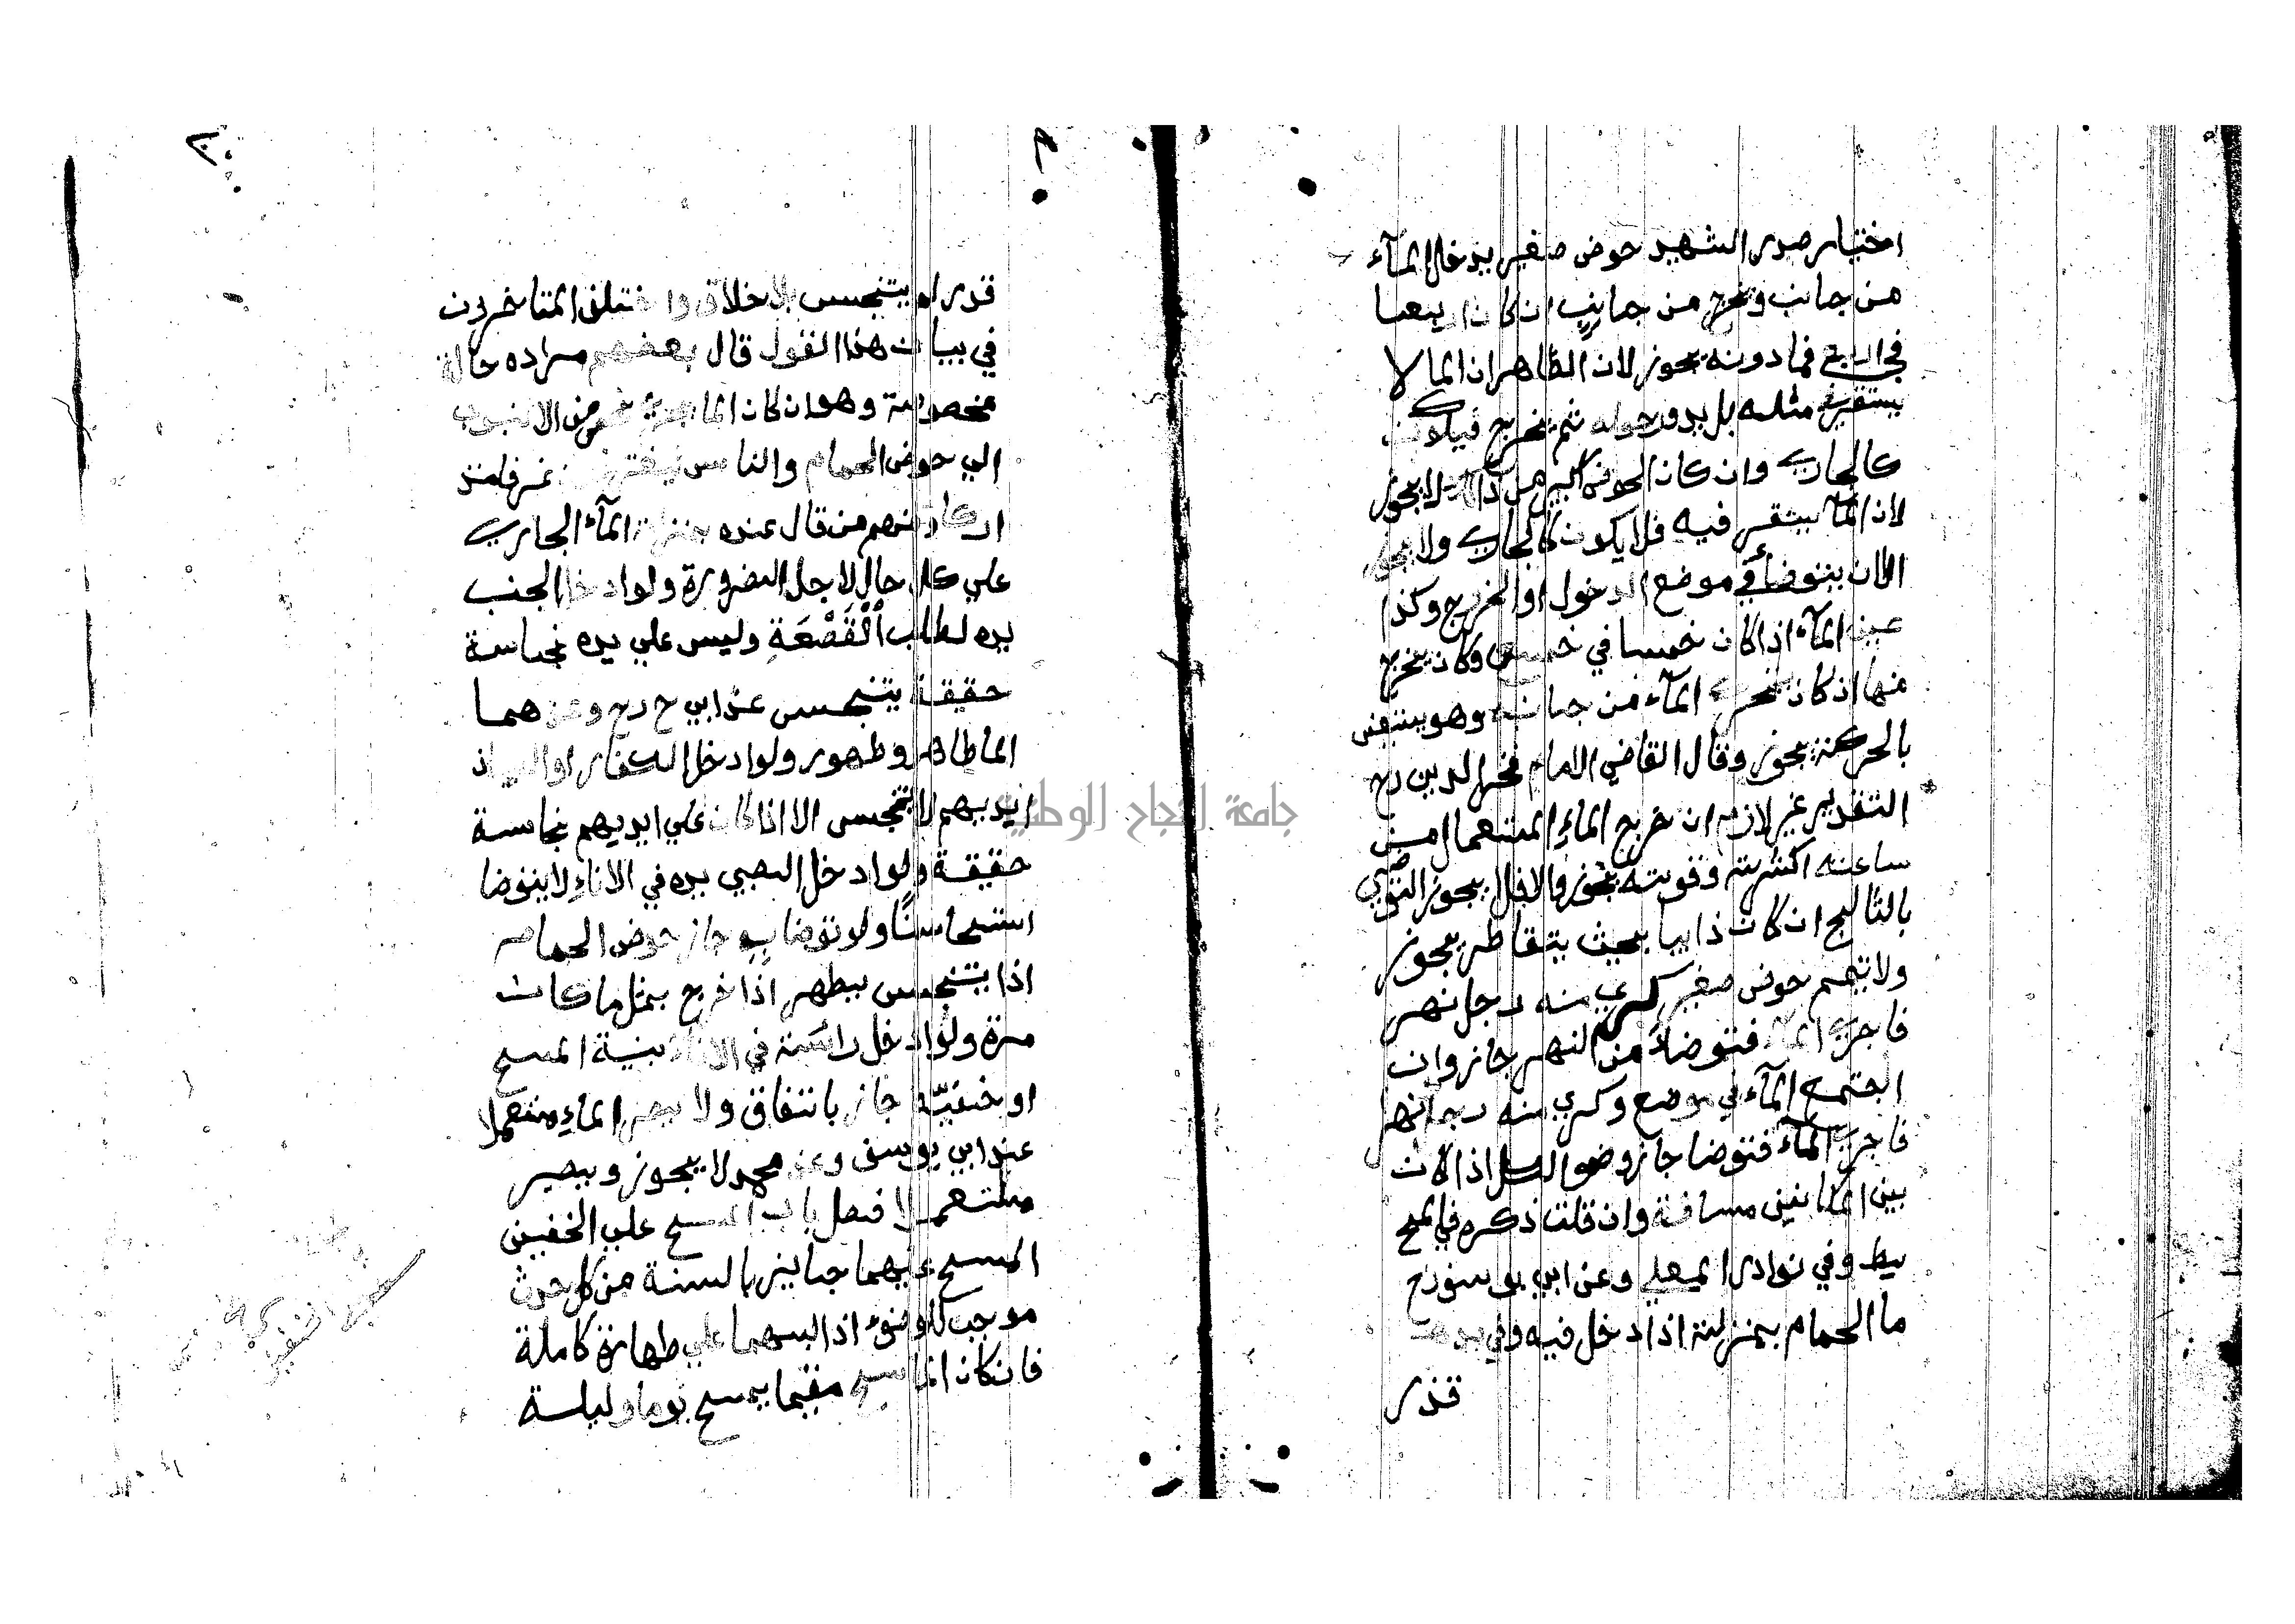 اختيار صدر الشهيد حوض صغير يدخل المآء
من جانب ويخرج من جانب ان كان اربعا
في اربع فما دونه يجوز لان الظاهر ان الما لا
يستقر مثله بل يدور حوله ثم يخرج فيكون
كالجاري وان كان الحوض اكبر من ذالك لا يجوز
لان المآ يستقر فيه فلا يكون كالجاري ولا يجوز
الا ان يتوضأ في موضع الدخول او الخروج وكذا
عين المآء اذا كان خمسا في خمس وكان يخرج
منها اذ كان يتحرك المآء من جانبه وهو ينتقض
بالحركة يجوز وقال القاضي الامام فخر الدين رح
التقدير غير لازم ان خرج الماء المستعمل من
ساعته لكثرته وقوته يجوز والا فلا يجوز التوضي
بالثالج ان كان ذايبا بحيث يتقاطر يجوز
ولا يتيمم حوض صغير كري منه رجل نهر
فاجري المآء فتوضأ من النهر جاز وان
اجتمع المآء في موضع وكري منه رجل نهر
فاجري المآء فتوضا جاز وضو الكل اذا كان
بين المكانين مسافة وان قلت ذكره في المح
يط وفي نوادر المعلي وعن ابي يوسف رح
ما الحمام بمنزلته اذا دخل فيه وفي يده
قذر
٣٠
٨
قذر لم يتنجس بلا خلاف واختلف المتاخرون
في بيان هذا القول قال بعضهم مراده حالة
مخصوصة وهو ان كان الما يجري من الانبوب
الي حوض الحمام والناس يغترفون غرفا متد
اركا ومنهم من قال عنده بمنزلة المآء الجاري
علي كل حال لاجل الضرورة ولو ادخل الجنب
يده لطلب اَلْقَصْعَةِ وليس علي يده نجاسة
حقيقة يتنجس عن ابي ح رح وعندهما
الما طاهر وطهور ولو ادخل الكفار او الصبيان
ايديهم لا يتنجس الا اذا كان علي ايديهم نجاسة
حقيقة ولو ادخل الصبي يده في الاناء لا يتوضا
استحاسنًا ولو توضا به جاز حوض الحمام
اذا يتنجس يطهر اذا خرج بمثل ما كان
مرة ولو ادخل رائسه في الاناء بنية المسح
او خفيّه جاز باتفاق ولا يصير الماء مستعملا
عند ابي يوسف وعند محمد لا يجوز ويصير
مستعملا فصل باب المسح علي الخفين
المسح عليهما جايز بالسنة من كل حدث
موجب للوضوء اذا لبسهما علي طهارة كاملة
فان كان الماسح مقيما يمسح يوما وليلة
جامعة النجاح الوطنية